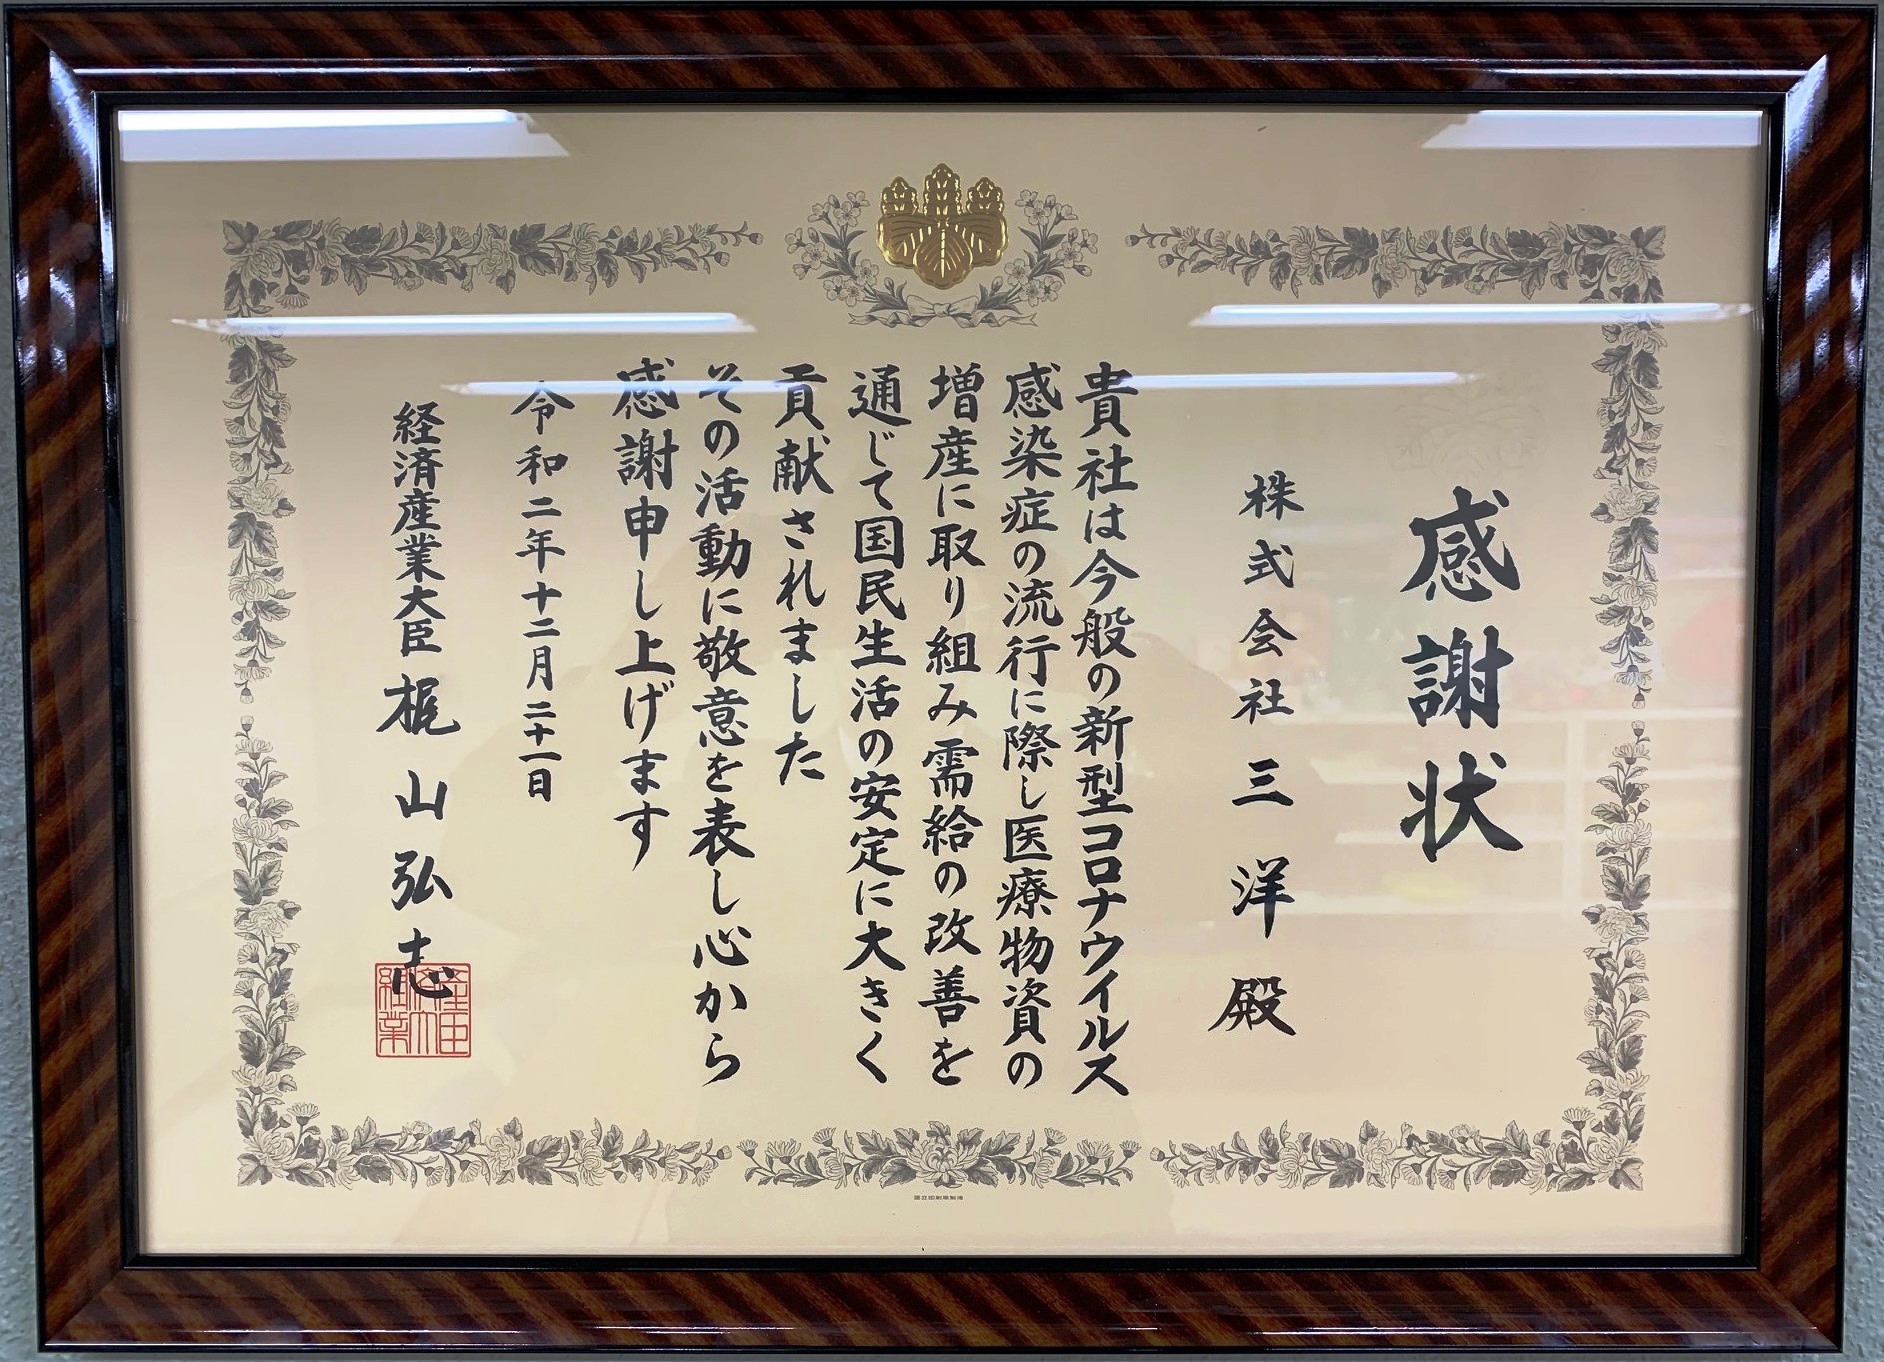 感謝状
株式会社三洋殿
貴社は今般の新型コロナウイルス
感染症の流行に際し医療物資の
増産に取り組み需給の改善を
通じて国民生活の安定に大きく
貢献されました
その活動に敬意を表し心から
感謝申し上げます
令和二年十二月二十一日
経済産業大臣 梶山弘志
国立印刷局製造